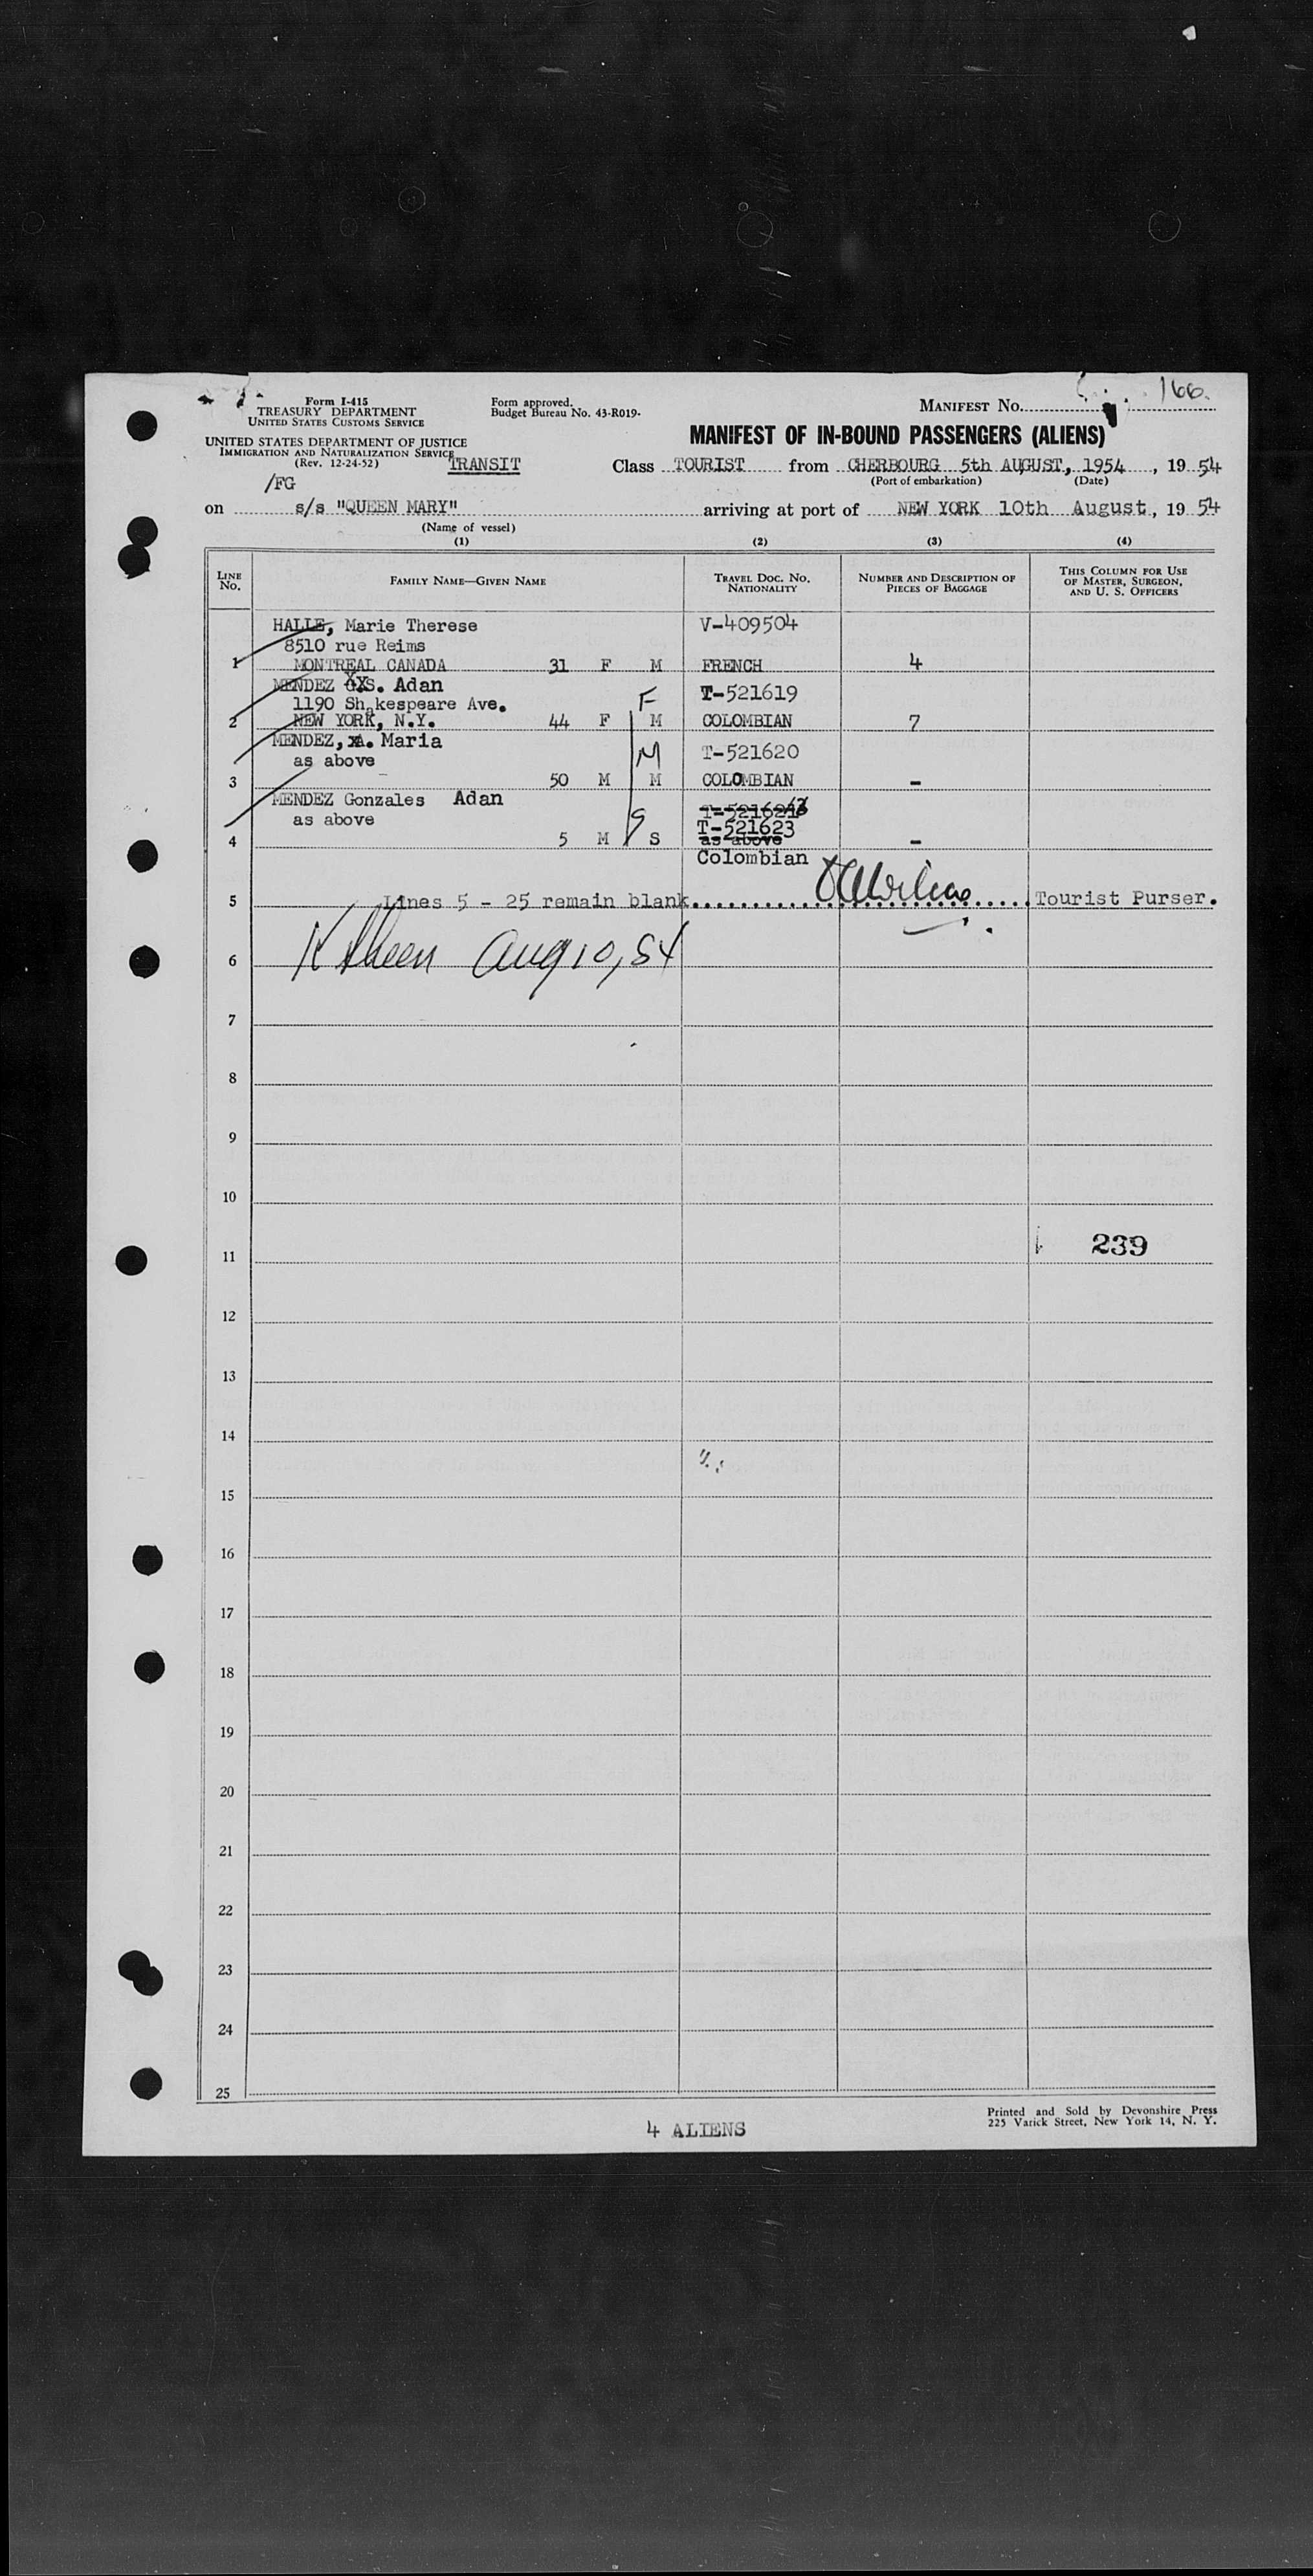 166.
Form I-415
TREASURY DEPARTMENT
UNITED STATES CUSTOMS SERVICE
Form approved.
Budget Bureau No. 43-R019.
MANIFEST No.
UNITED STATES DEPARTMENT OF JUSTICE
IMMIGRATION AND NATURALIZATION SERVICE
(Rev. 12-24-52)
MANIFEST OF IN-BOUND PASSENGERS (ALIENS)
TRANSIT
Class TOURIST from CHERBOURG 5th AUGUST, 1954, 19 54
(Port of embarkation) (Date)
/FG
on s/s "QUEEN MARY" arriving at port of NEW YORK 10th August, 19 54
(Name of vessel)
(1) (2) (3) (4)
LINE NO. FAMILY NAME—GIVEN NAME TRAVEL DOC. NO. NATIONALITY NUMBER AND DESCRIPTION OF PIECES OF BAGGAGE THIS COLUMN FOR USE OF MASTER, SURGEON, AND U. S. OFFICERS
HALLE, Marie Therese V-409504
8510 rue Reims
1 MONTREAL CANADA 31 F M FRENCH 4
MENDEZ S. Adan T-521619
1190 Shakespeare Ave. F
2 NEW YORK, N.Y. 44 F M COLOMBIAN 7
MENDEZ, A. Maria T-521620
as above M
3 50 M M COLOMBIAN -
MENDEZ Gonzales Adan
as above T-521623
4 5 M S S as above -
Colombian
5 Lines 5 - 25 remain blank Tourist Purser.
6 Aug 10, 54
7
8
9
10
11 239
12
13
14
15
16
17
18
19
20
21
22
23
24
25
4 ALIENS
Printed and Sold by Devonshire Press
225 Varick Street, New York 14, N. Y.